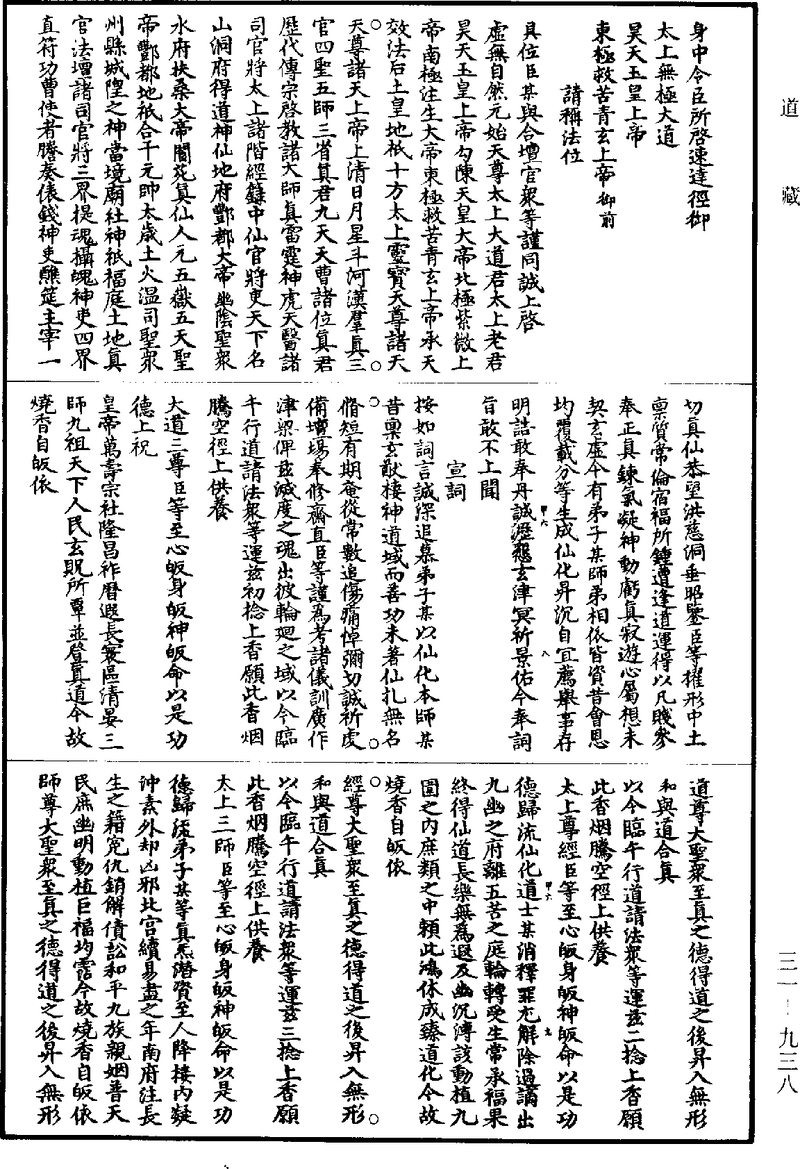 道藏
身中令臣所啓速達徑御
太上無極大道
昊天玉皇上帝
東極救苦青玄上帝御前
請稱法位
具位臣某與合壇官衆等謹同誠上啓
虛無自然元始天尊太上大道君太上老君
昊天玉皇上帝勾陳天皇大帝北極紫微上
帝南極注生大帝東極救苦青玄上帝承天
效法后土皇地祇十方太上靈寶天尊諸天
天尊諸天上帝上清日月星斗河漢羣真三
官四聖五師三省真君九天天曹諸位真君
歷代傳宗啓教諸大師真雷霆神虎天醫諸
司官將太上諸階經籙中仙官將吏天下名
山洞府得道神仙地府酆都大帝幽陰聖衆
水府扶桑大帝闔宛真仙人元五嶽五天聖
帝酆都地祇合千元帥太歲土火溫司聖衆
州縣城隍之神當境廟社神祇福庭土地真
官法壇諸司官將三界提魂攝魄神吏四界
直符功曹使者謄奏俵錢神吏醮筵主宰一
切真仙恭望洪慈洞垂昭鑒臣等擢形中土
稟質常倫宿福所鍾遭逢道運得以凡賤參
奉正真鍊氣凝神動虧真寂遊心屬想未
契玄虛今有弟子某師弟相依皆資昔會恩
均覆載分等生成仙化昇沉自宜薦舉事存
明誥敢奉丹誠瀝懇玄津冥祈景佑今奉詞
旨敢不上聞
宣詞
按如詞言誠深追慕弟子某以仙化本師某
昔稟玄猷棲神道域而善功未著仙札無名
脩短有期奄從常數追傷痛悼彌切誠祈虔
備壇場奉修齋直臣等謹為考諸儀訓廣作
津梁俾兹滅度之魂出彼輪廻之域以今臨
午行道請法衆等運兹初捻上香願此香烟
騰空徑上供養
大道三尊臣等至心皈身皈神皈命以是功
德上祝
皇帝萬壽宗社隆昌祚曆遐長寰區清晏三
師九祖天下人民玄貺所覃並登真道今故
燒香自皈依
道尊大聖衆至真之德得道之後昇入無形
和與道合真
以今臨午行道請法衆等運兹二捻上香願
此香烟騰空徑上供養
太上尊經臣等至心皈身皈神皈命以是功
德歸流仙化道士某消釋罪尤解除過謫出
九幽之府離五苦之庭輪轉受生常承福果
終得仙道長樂無為遐及幽沉溥該動植九
圍之內庶類之中賴此鴻休咸臻道化今故
燒香自皈依
經尊大聖衆至真之德得道之後昇入無形
和與道合真
以今臨午行道請法衆等運兹三捻上香願
此香烟騰空徑上供養
太上三師臣等至心皈身皈神皈命以是功
德歸流弟子某等真炁潛資至人降接內凝
沖素外却凶邪北宫續易盡之年南府注長
生之籍寃仇銷解債訟和平九族親姻普天
民庶幽明動植巨福均霑今故燒香自皈依
師尊大聖衆至真之德得道之後昇入無形
三一－九三八